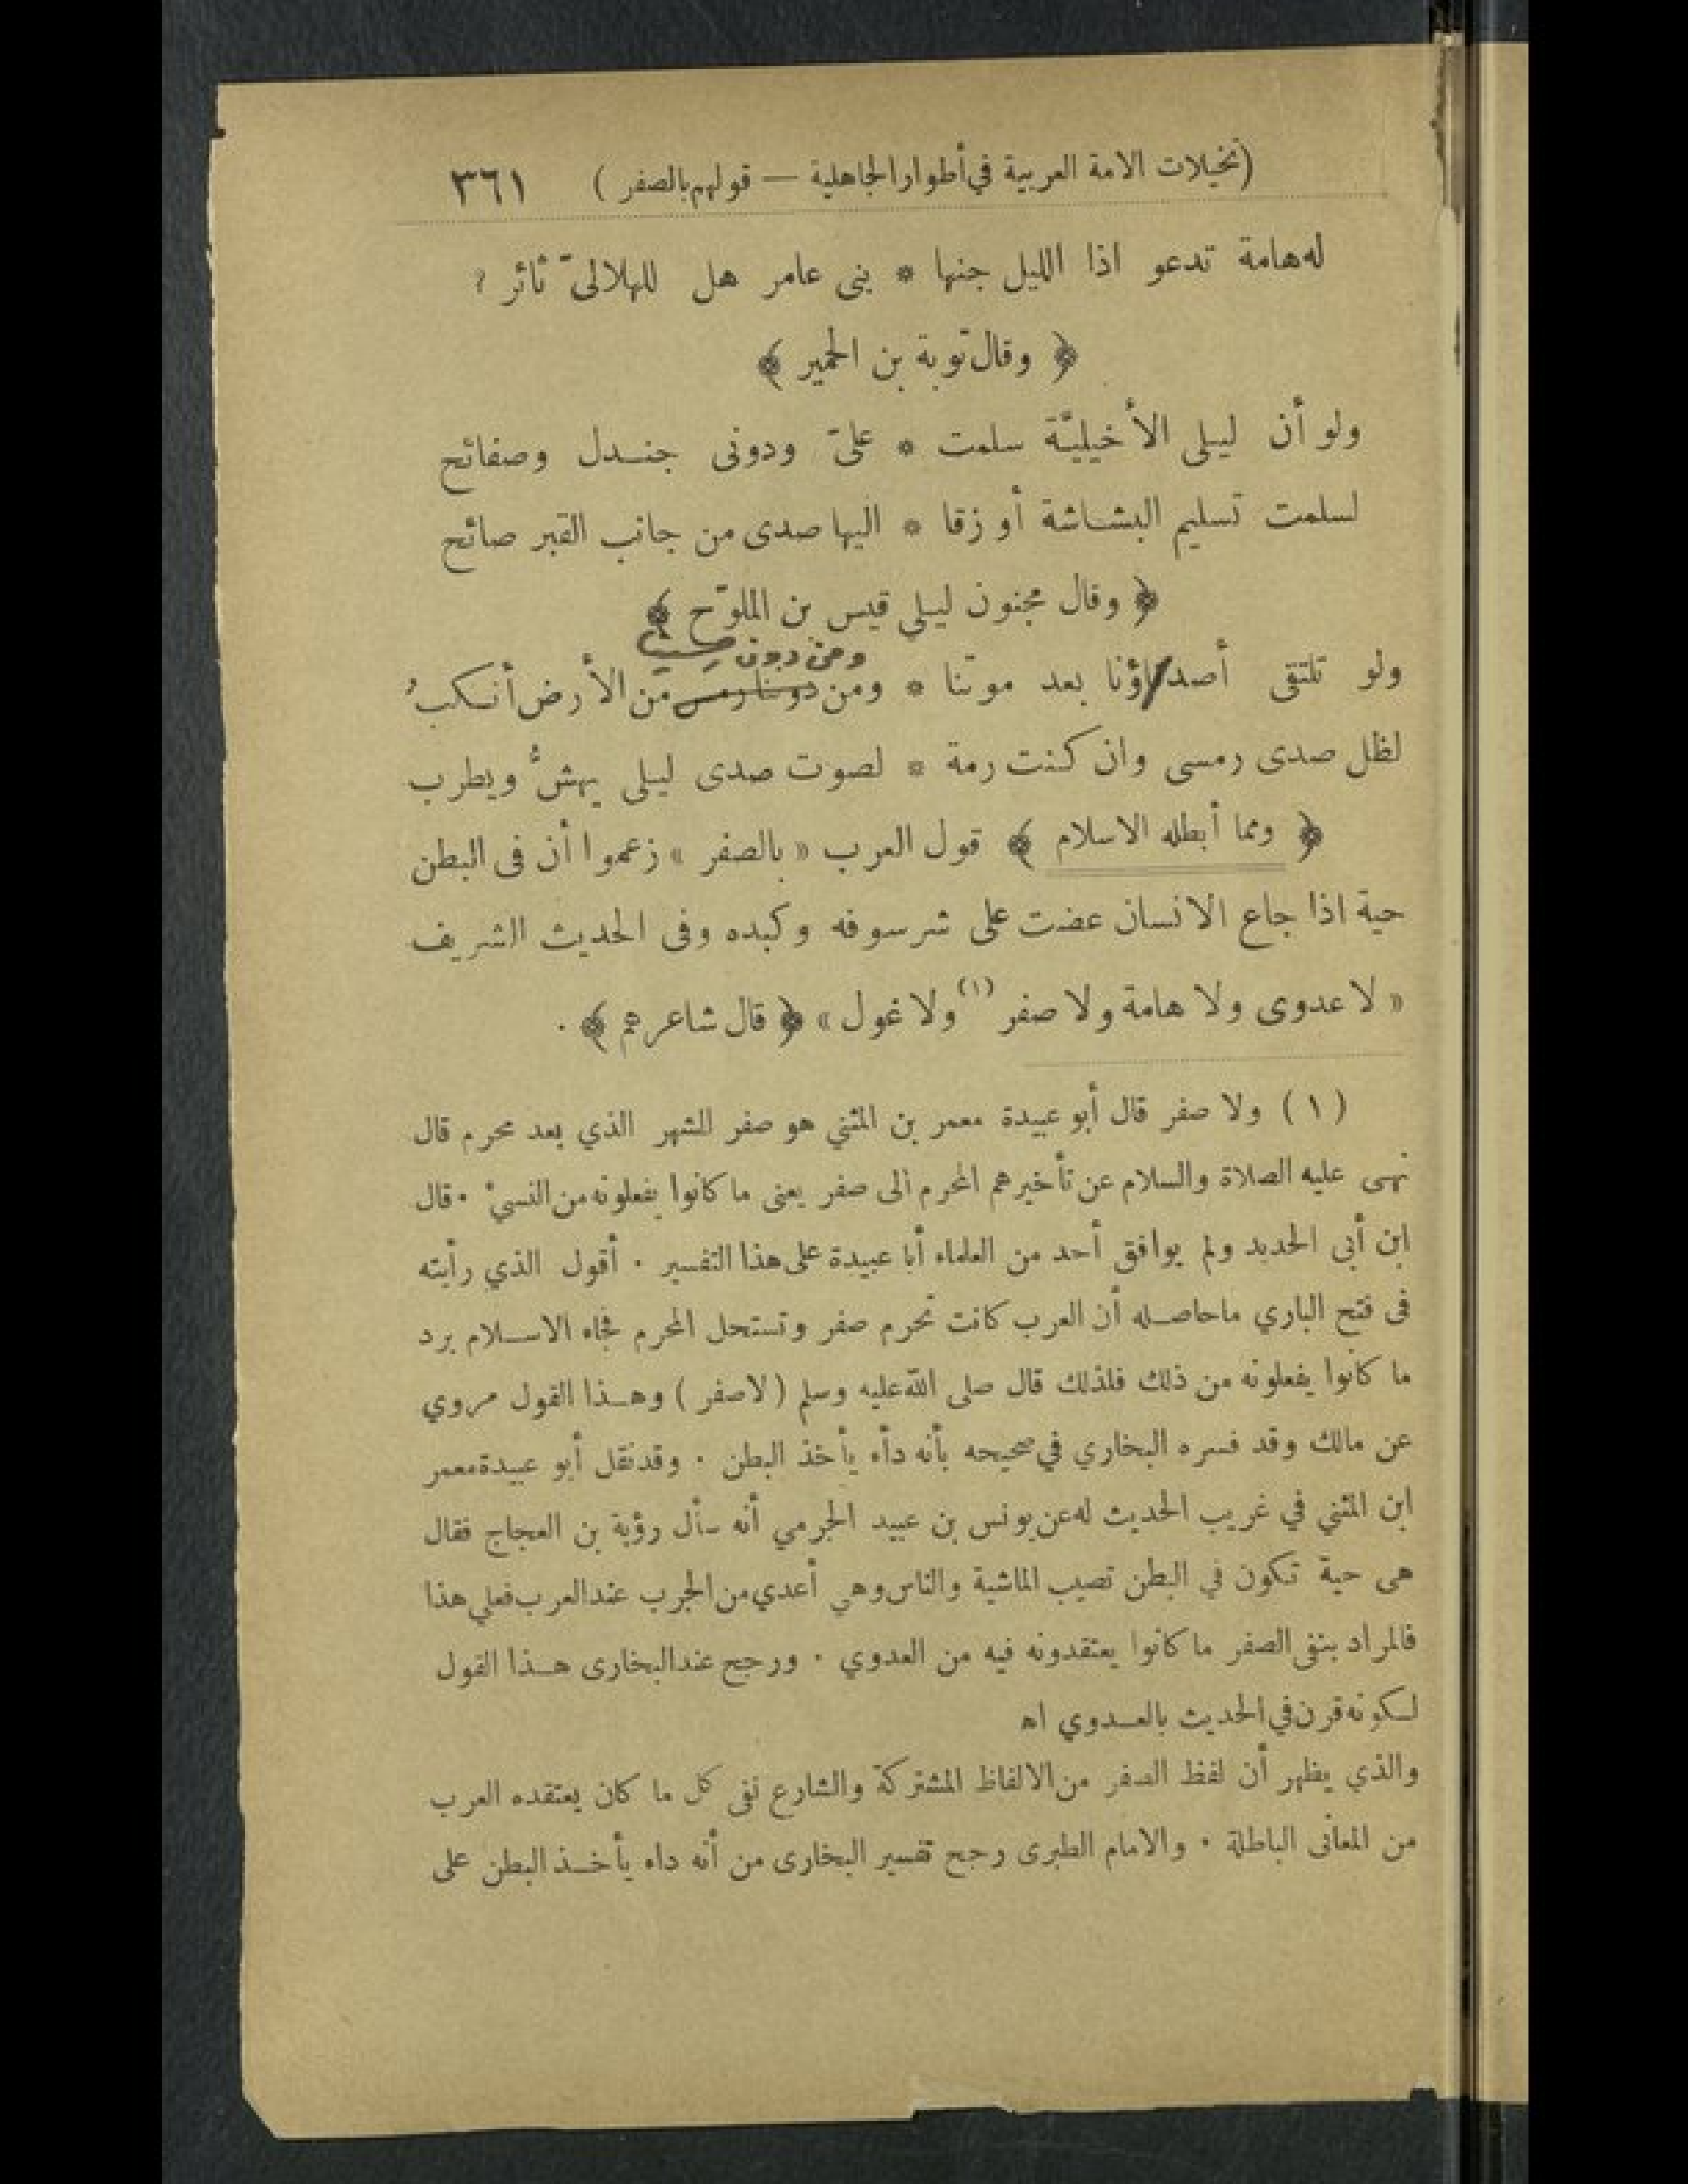 (تخيلات الامة العربية في أطوار الجاهلية — قولهم بالصفر) ٣٦١
له هامة تدعو اذا الليل جنها * بنى عامر هل للهلالىّ ثائر ؟
﴿ وقال توبة بن الحمير ﴾
ولو أن ليلى الأخيليَّة سلمت * علىّ ودونى جندل وصفائح
لسلمت تسليم البشاشة أو زقا * اليها صدى من جانب القبر صائح
﴿ وقال مجنون ليلى قيس بن الملوّح ﴾
ومن دون
ولو تلتقى أصداؤنا بعد موتنا * ومن دوننا رمس من الأرض أنكبُ
لظل صدى رمسى وان كنت رمة * لصوت صدى ليلى يهشُّ ويطرب
﴿ ومما أبطله الاسلام ﴾ قول العرب « بالصفر » زعموا أن فى البطن
حية اذا جاع الانسان عضت على شرسوفه وكبده وفى الحديث الشريف
« لا عدوى ولا هامة ولا صفر (١) ولا غول » ﴿ قال شاعرهم ﴾ .
(١) ولا صفر قال أبو عبيدة معمر بن المثني هو صفر للشهر الذي بعد محرم قال
نهى عليه الصلاة والسلام عن تأخيرهم المحرم الى صفر يعنى ما كانوا يفعلونه من النسيء . قال
ابن أبى الحديد ولم يوافق أحد من العلماء أبا عبيدة على هذا التفسير . أقول الذي رأيته
فى فتح الباري ما حاصله أن العرب كانت تحرم صفر وتستحل المحرم فجاء الاسلام برد
ما كانوا يفعلونه من ذلك فلذلك قال صلى الله عليه وسلم (لا صفر) وهذا القول مروي
عن مالك وقد فسره البخاري في صحيحه بأنه داء يأخذ البطن . وقد نقل أبو عبيدة معمر
ابن المثني في غريب الحديث له عن يونس بن عبيد الجرمي أنه سأل رؤبة بن العجاج فقال
هى حية تكون في البطن تصيب الماشية والناس وهي أعدي من الجرب عند العرب فعلي هذا
فالمراد بنفى الصفر ما كانوا يعتقدونه فيه من العدوي . ورجح عند البخارى هذا القول
لكونه قرن في الحديث بالعدوي اه
والذي يظهر أن لفظ الصفر من الالفاظ المشتركة والشارع نفى كل ما كان يعتقده العرب
من المعانى الباطلة . والامام الطبرى رجح تفسير البخارى من أنه داء يأخذ البطن على